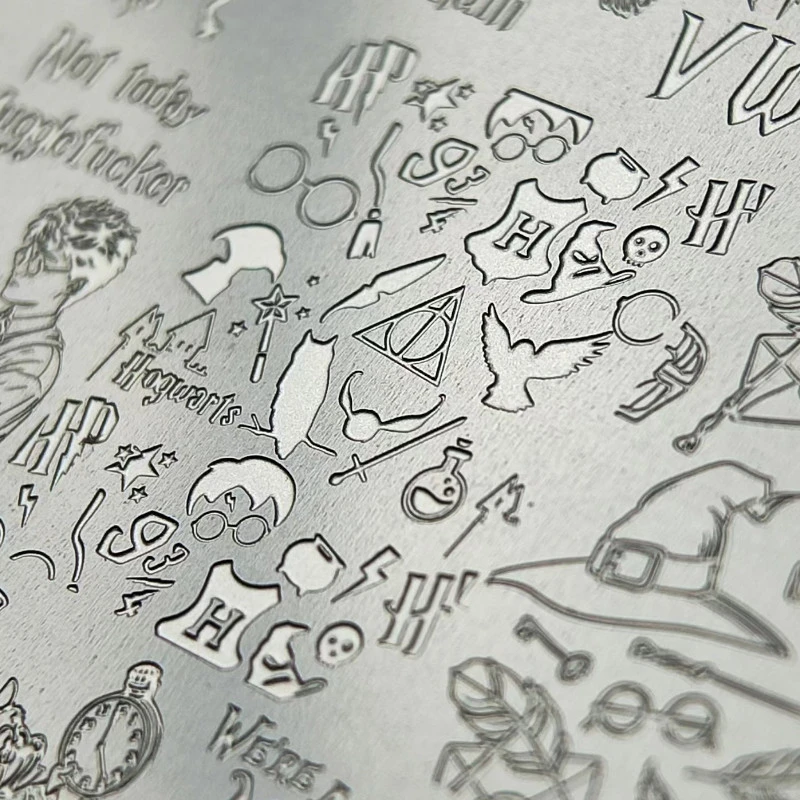 Not today
VW
HP
9 3/4
H
H
Hogwarts
HP
9 3/4
H
H
We're